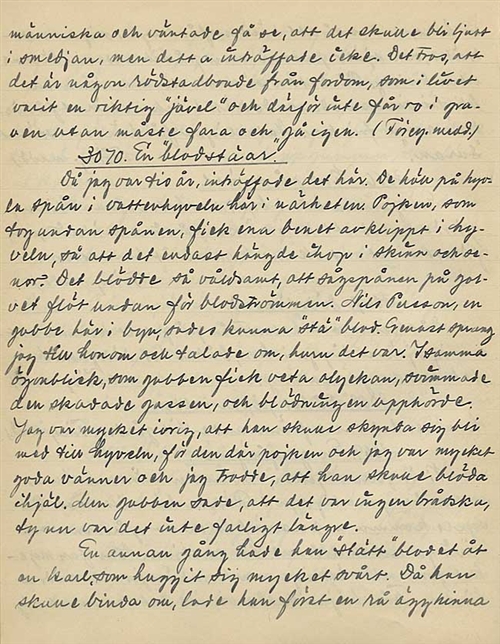 människa och väntade få se, att det skulle bli ljust
i smedjan, men detta inträffade icke. Det tros, att
det är någon Rödstadboende från fordom, som i livet
varit en riktig "jävel" och därför inte får ro i gra-
ven utan måste fara och gå igen. (Föreg. medd.)
3070. En "blodstäar".
Då jag var tio år, inträffade det här. De höll på hyv-
en spån i vattenhyveln här i närheten. Pojken, som
tog undan spånen, fick ena benet avklippt i hy-
veln, så att det endast hängde ihop i skinn och se-
nor. Det blödde så våldsamt, att sågspånen på gol-
vet flöt undan för blodströmmen. Nils Persson, en
gubbe här i byn, sades kunna "stä" blod. Genast sprang
jag till honom och talade om, hur det var. I samma
ögonblick, som gubben fick veta olyckan, svimmade
den skadade gossen, och blödningen upphörde.
Jag var mycket ivrig, att han skulle skynda sig bli
med till hyveln, för den där pojken och jag var mycket
goda vänner och jag trodde, att han skulle blöda
ihjäl. Men gubben sade, att det var ingen brådska,
ty nu var det inte farligt längre.
En annan gång hade han "stått" blodet åt
en karl, som huggit sig mycket svårt. Då han
skulle binda om, lade han först en rå ägghinna